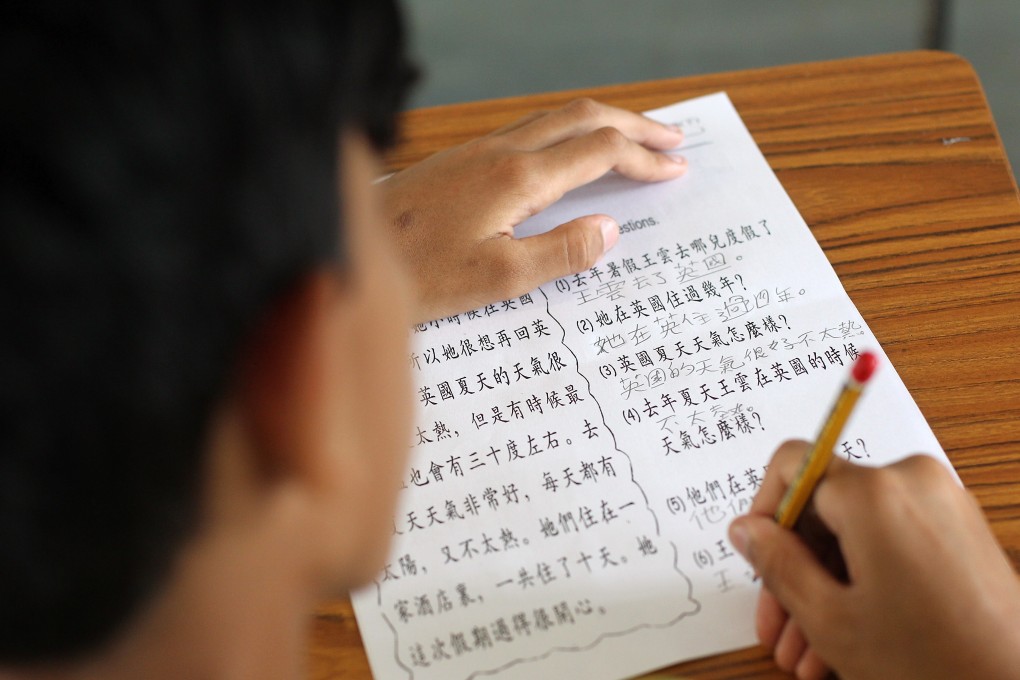 estions.
(1)去年暑假王雲去哪兒度假了
王雲去了英國。
(2)她在英國住過幾年?
她在英住過四年。
(3)英國夏天天氣怎麼樣?
英國的天氣很好不太熱。
(4)去年夏天王雲在英國的時候
不太熱。
天氣怎麼樣?
(5)他們在英
天?
他們
(6)王
王
小時候在英國
所以她很想再回英
英國夏天的天氣很
太熱,但是有時候最
也會有三十度左右。去
天天氣非常好,每天都有
太陽,又不太熱。她們住在一
家酒店裏,一共住了十天。她
這次假期過得很開心。